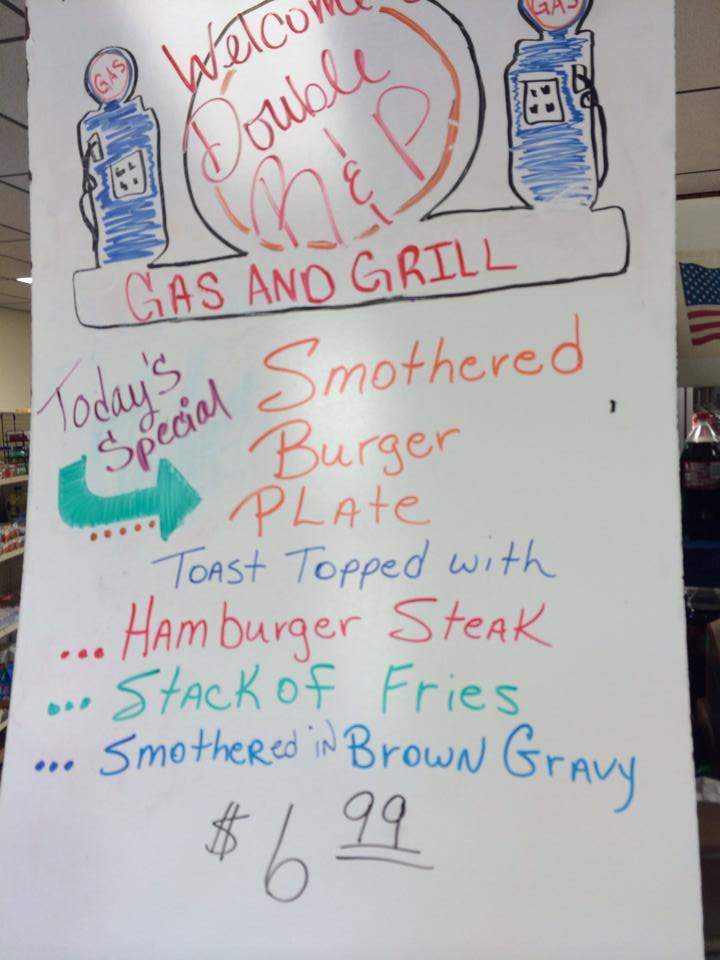 GAS
GAS
Welcome
Double
R & P
GAS AND GRILL
Today's
Special
Smothered
Burger
PLAte
TOAST Topped with
... HAmburger SteAK
... StACK OF Fries
... SmotheRed iN BROWN GrAVY
$6 99